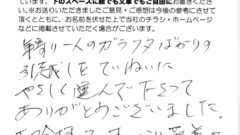 ています。下のスペースに絵でも文章でもご自由にお書きください。
※お送りいただきましたご意見・ご感想は今後の参考にさせて
頂くとともに、お名前を伏せた上で当社のチラシ・ホームページ
などに掲載させていただく場合がございます。
一人のガラクタばかりの
引越しをていねいに
やさしく運んで下さって
ありがとうございました。